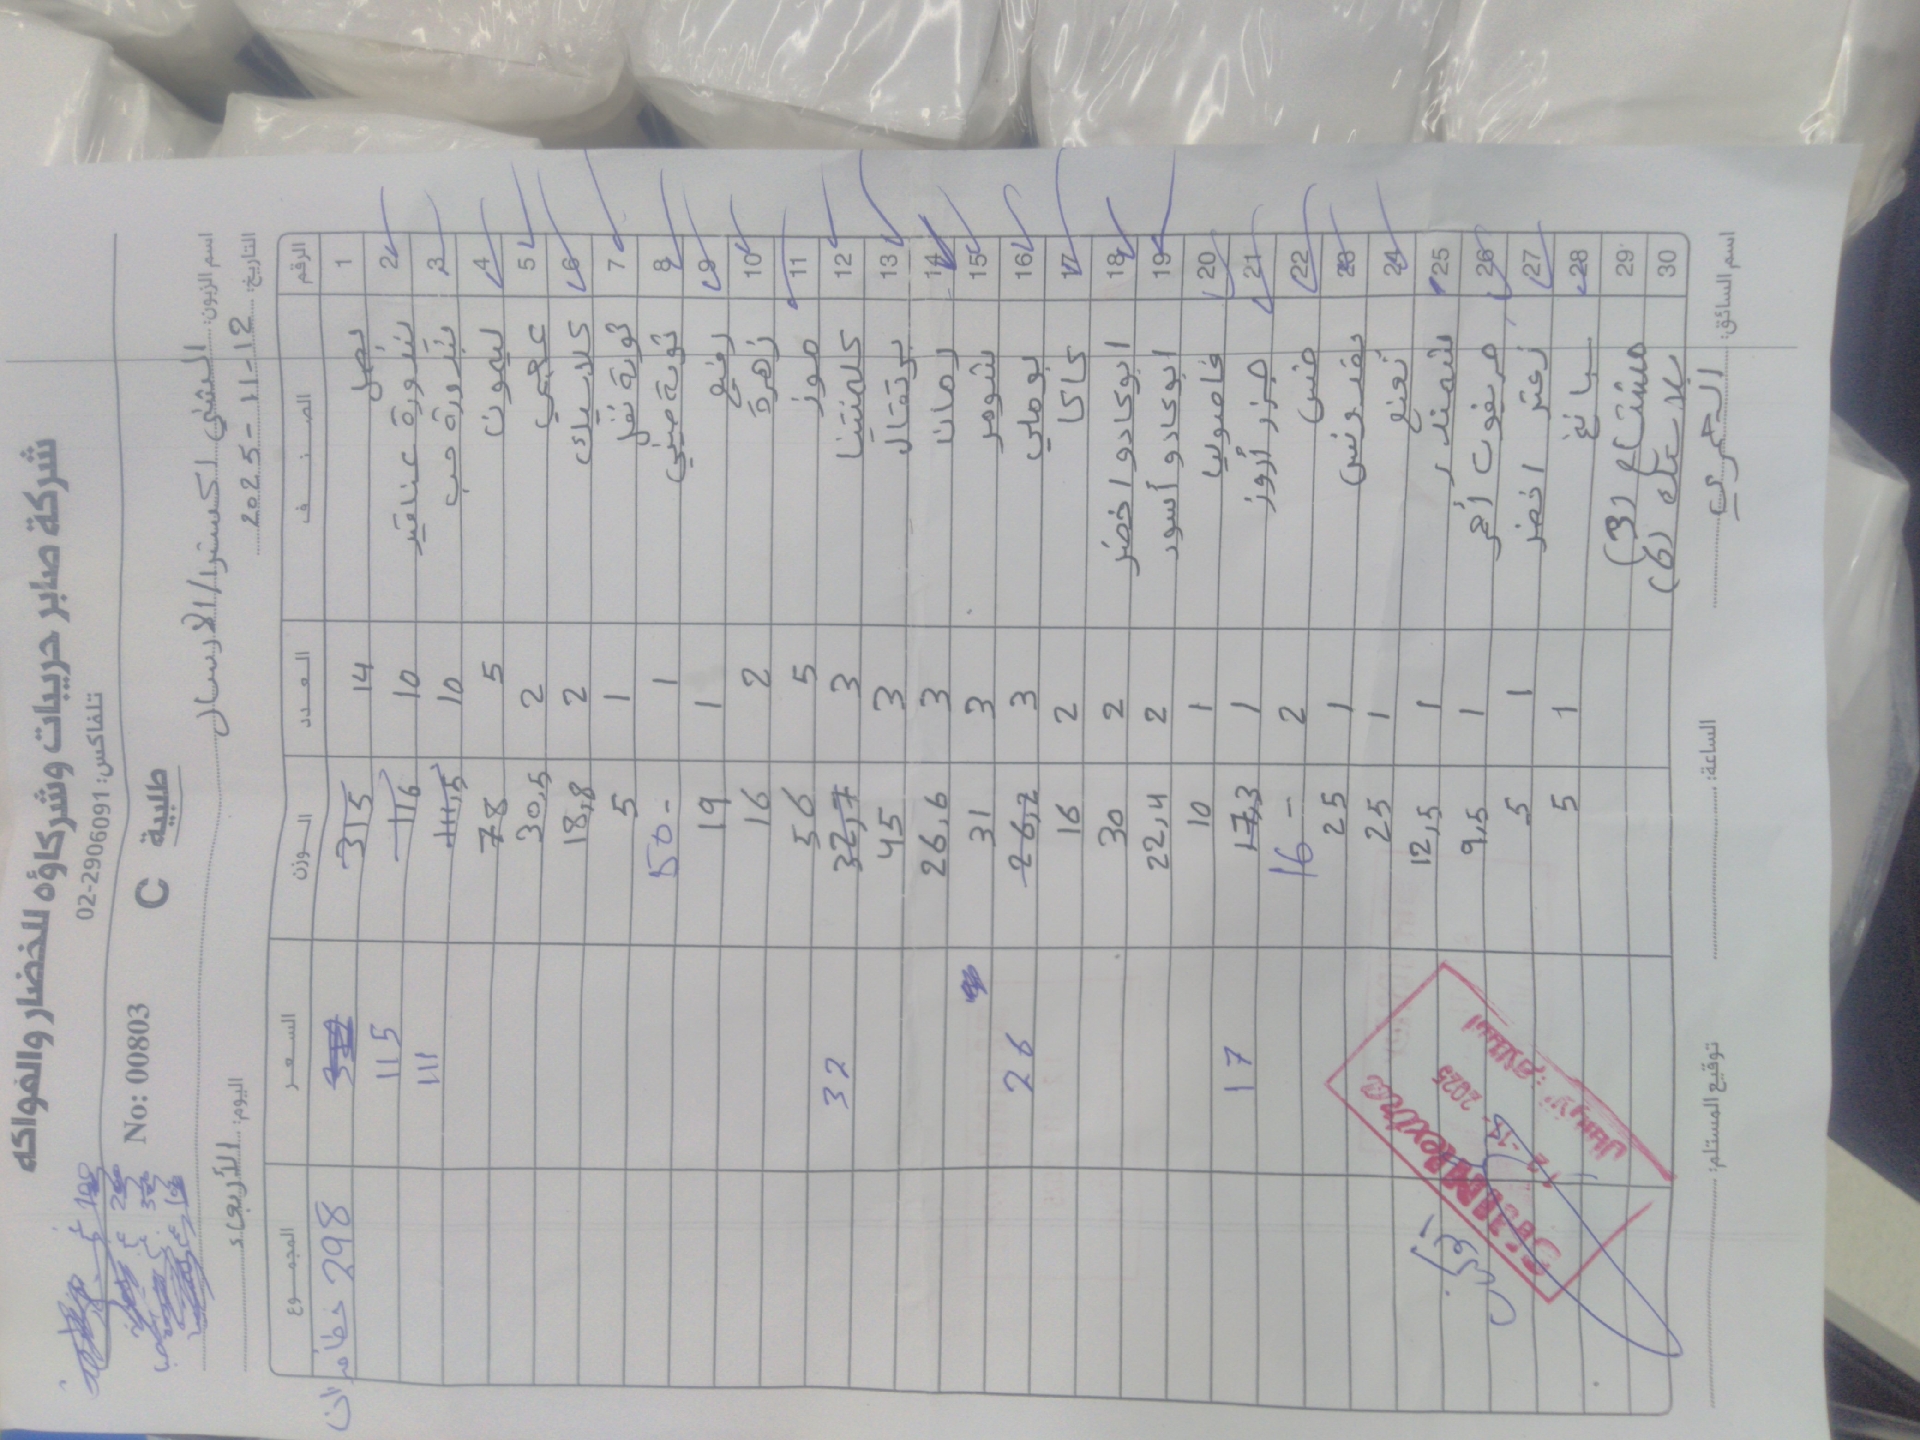 شركة صابر حريبات وشركاؤه للخضار والفواكه
تلفاكس: 02-2906091
No: 00803 C طلبية
اسم الزبون: الشني اكسترا/الارسال
التاريخ: 2025-11-12 اليوم: الأربعاء
الرقم الصنف العدد الوزن السعر المجموع
1 بصل 14 315 298
2 بندورة عناقيد 10 116 115
3 بندورة حب 10 111,5 111
4 ليمون 5 78
5 2 30,5
6 2 18,8
7 1 5
8 1 50 -
9 1 19
10 زهرة 2 16
11 موز 5 56
12 كلمنتينا 3 32,7 32
13 برتقال 3 45
14 رمان 3 26,6
15 شومر 3 31
16 بوملي 3 26,2 26
17 كاكا 2 16
18 ابوكادو اخضر 2 30
19 ابوكادو أسود 2 22,4
20 فاصوليا 1 10
21 جزر 1 17,3 17
22 خس 2 16 -
23 بقدونس 1 25
24 نعنع 1 25
25 شمندر 1 12,5
26 1 9,5
27 زعتر اخضر 1 5
28 سبانخ 1 5
29 مشتاح (3)
30 (6)
اسم السائق: الساعة: توقيع المستلم:
2025